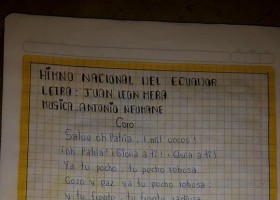 HIMNO NACIONAL DEL ECUADOR
LETRA: JUAN LEON MERA
MUSICA: ANTONIO NEUMANE
Coro
Salve oh Patria, ¡mil veces!
¡oh Patria! ¡Gloria a ti! ¡Gloria a ti!
Ya tu pecho, tu pecho rebosa
Gozo y paz ya tu pecho rebosa
y tu frente, tu frente radiosa